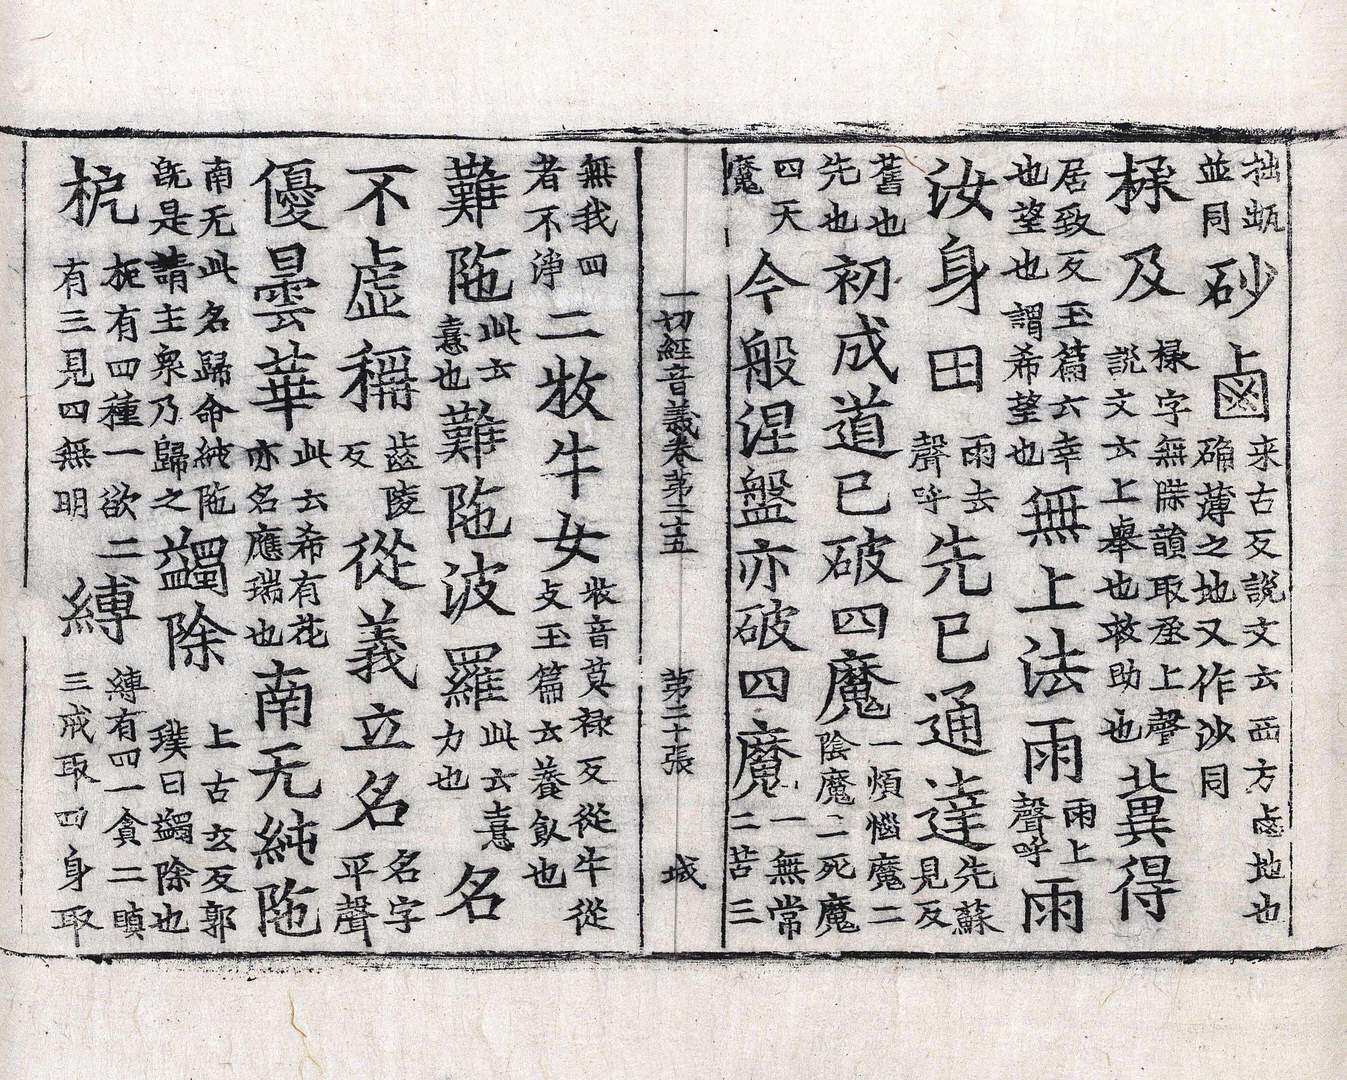 拙㼤並同砂鹵上来古反說文云西方鹵地也确薄之地又作沙同
椂及椂字無䐑韻取丞上聲說文云上舉也救助也冀得
居致反玉篇云幸也望也謂希望也無上法雨雨上聲呼雨
汝身田雨去聲呼先已通達先蘇見反
舊也先也初成道已破四魔一煩惱魔二陰魔二死魔
四天魔今般涅盤亦破四魔一無常二苦三
一切經音義卷第二十五 第二十張 城
無我四者不淨二牧牛女牧音莫禄反從牛從攴玉篇云養飤也
難陁此云憙也難陁波羅此云憙力也名
不虛稱齒陵反從義立名名字平聲
優曇華此云希有亦名應瑞花也南无純陁
南无此名歸命純陁旣是請主衆乃歸之蠲除上古玄反郭璞曰蠲除也
枙枙有四種一欲二有三見四無明縛縛有四一貪二瞋三戒取四身取